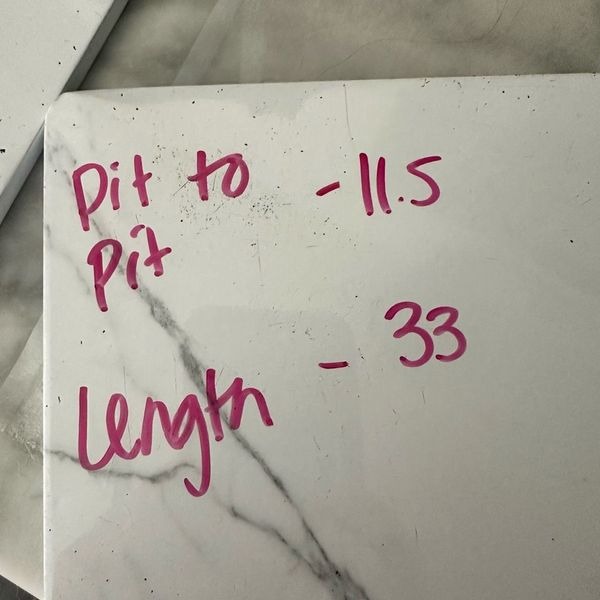 Pit to - 11.5
Pit
Length - 33